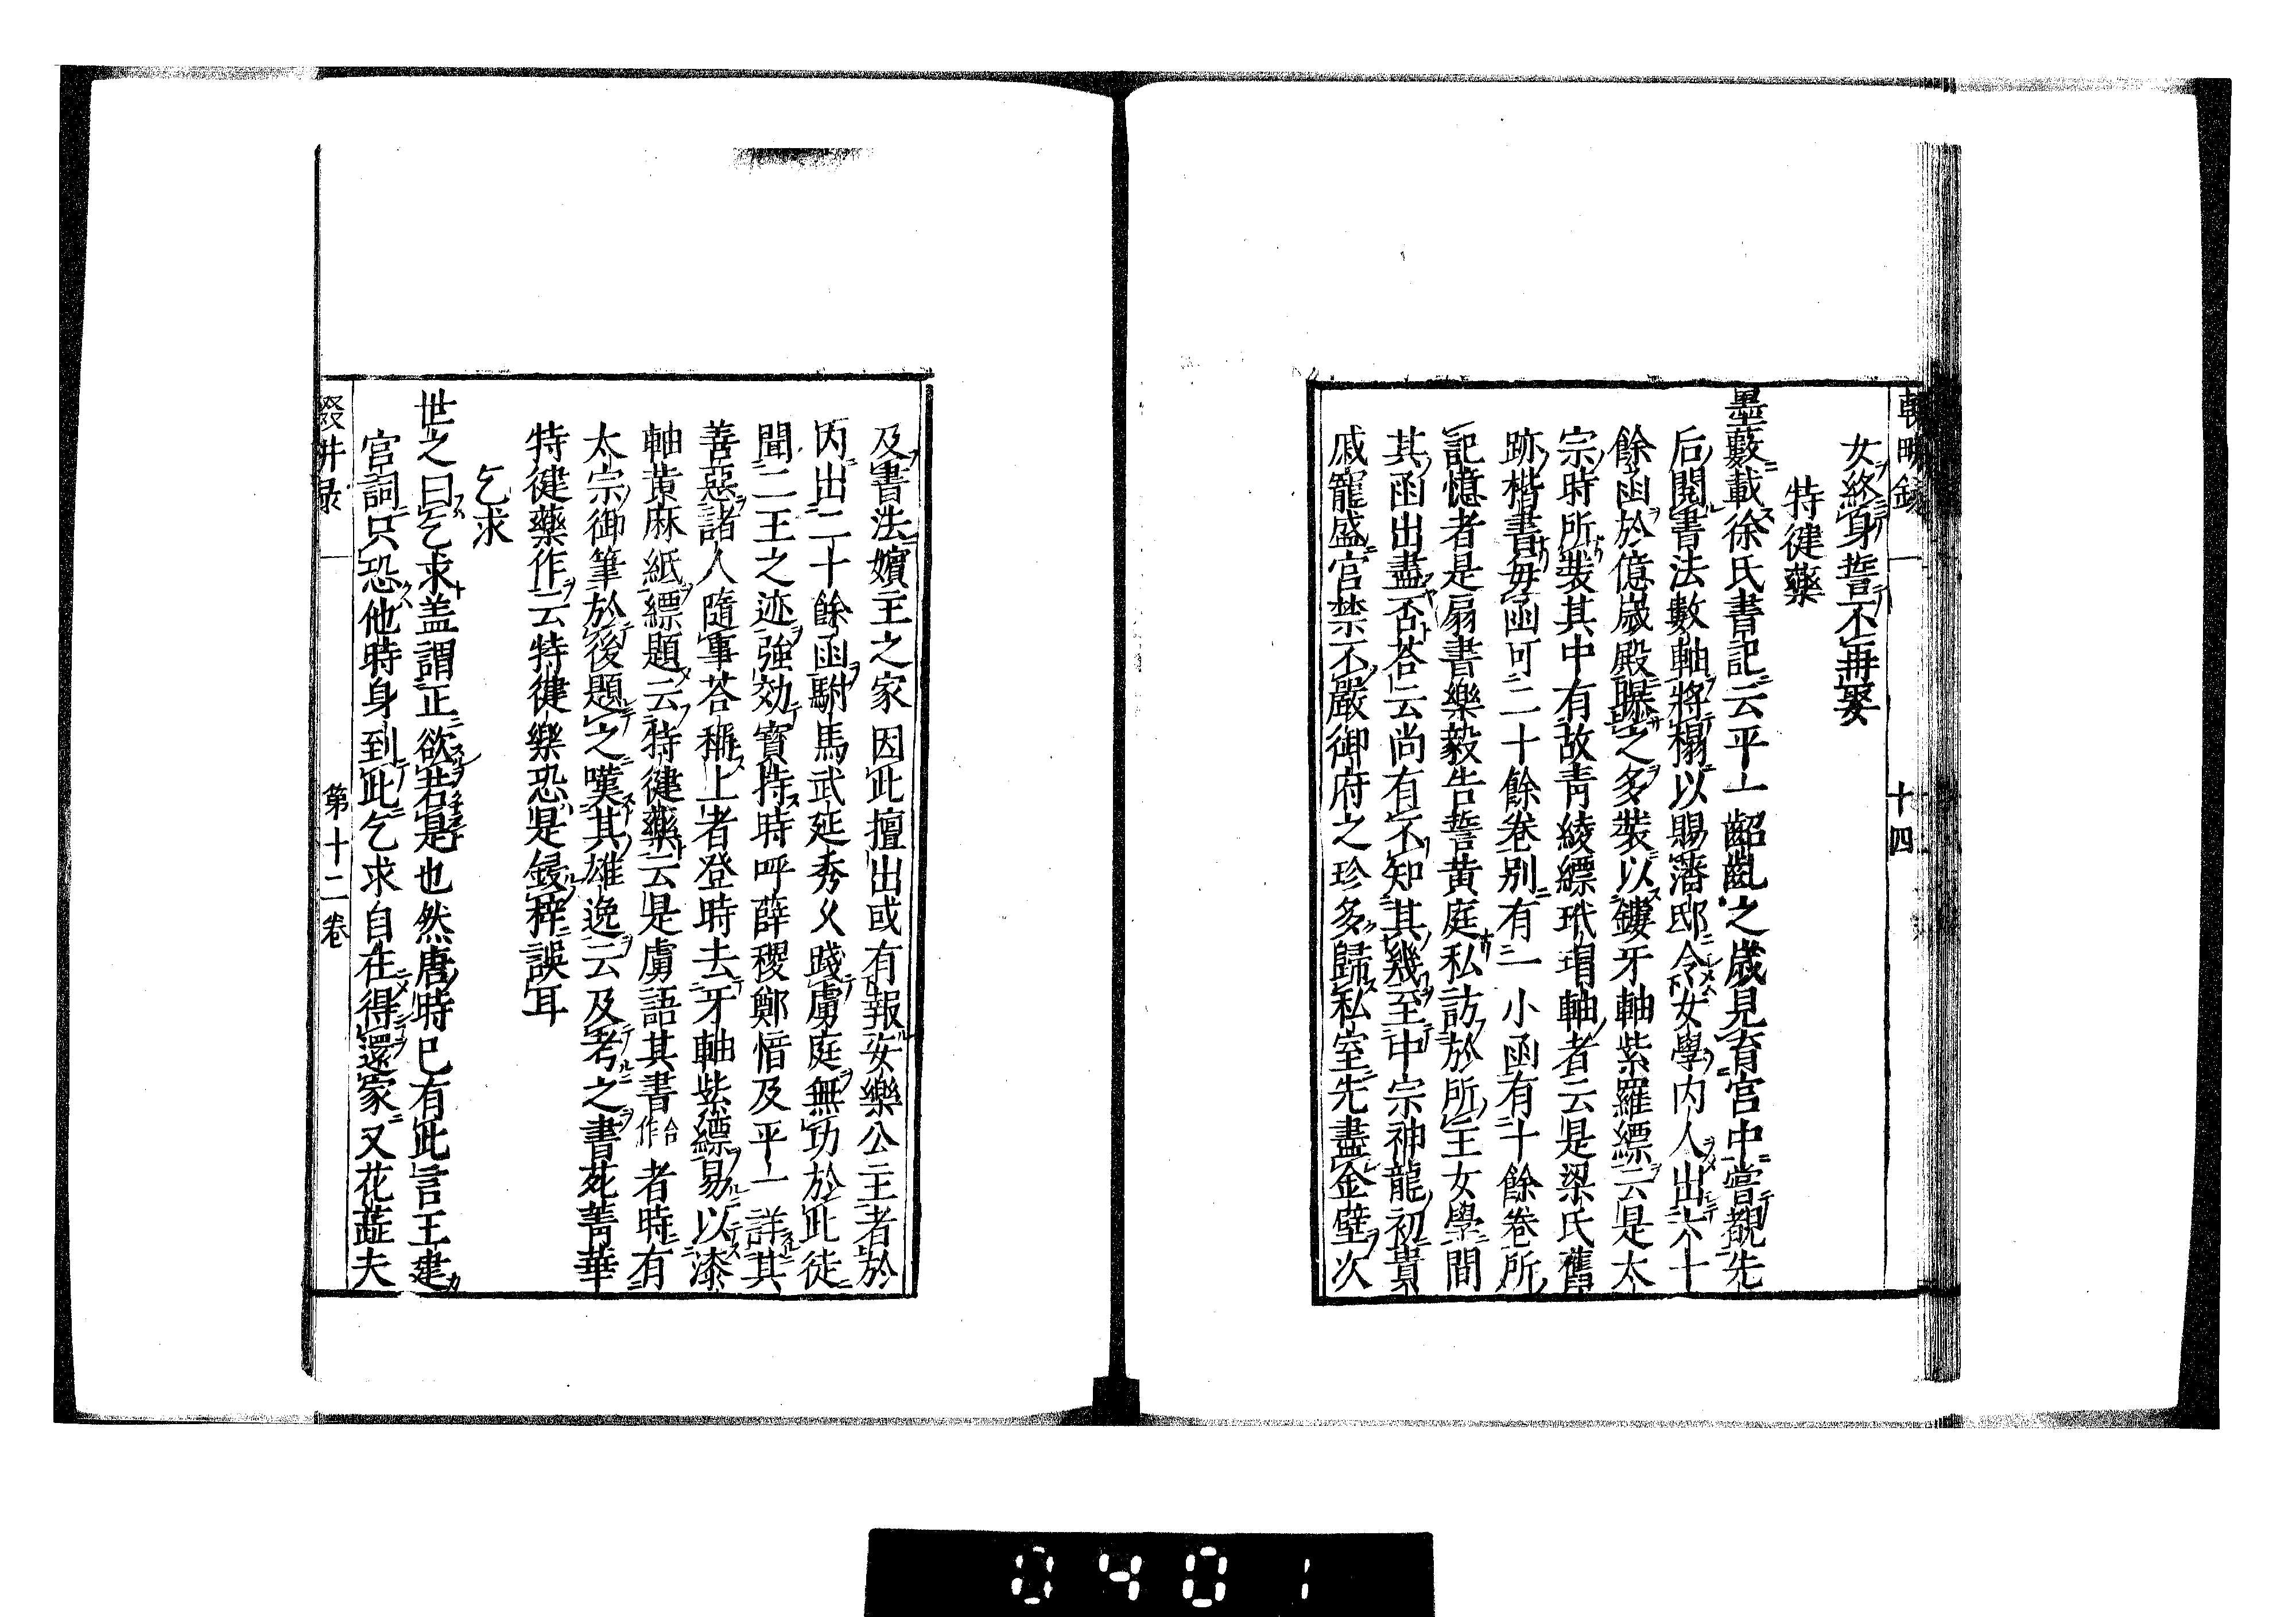 十四
女終身誓不再娶
特健藥
墨藪載徐氏書記云平一齠齔之歲見育宮中嘗覩先
后閱書法數軸將搨以賜藩邸令女學內人出六十
餘函於億歲殿曝之多裝以鏤牙軸紫羅縹云是太
宗時所裝其中有故青綾縹玳瑁軸者云是梁氏舊
跡楷書每函可二十餘卷別有一小函有十餘卷所
記憶者是扇書樂毅告誓黃庭私訪於所主女學間
其函出盡否荅云尚有不知其幾至中宗神龍初貴
戚寵盛官禁不嚴御府之珍多歸私室先盡金璧次
及書法嬪主之家因此擅出或有報安樂公主者於
內出二十餘函駙馬武延秀久踐虜庭無功於此徒
聞二王之迹強効寶持時呼薛稷鄭愔及平一詳其
善惡諸人隨事荅稱上者登時去牙軸紫縹易以漆
軸黃麻紙縹題云特健藥云是虜語其書合作者時有
太宗御筆於後題之嘆其雄逸云及考之書苑菁華
特健藥作云特健樂恐是鋟梓誤耳
乞求
世之曰乞求盖謂正欲若是也然唐時已有此言王建
宮詞只恐他時身到此乞求自在得還家又花蕋夫
第十二卷